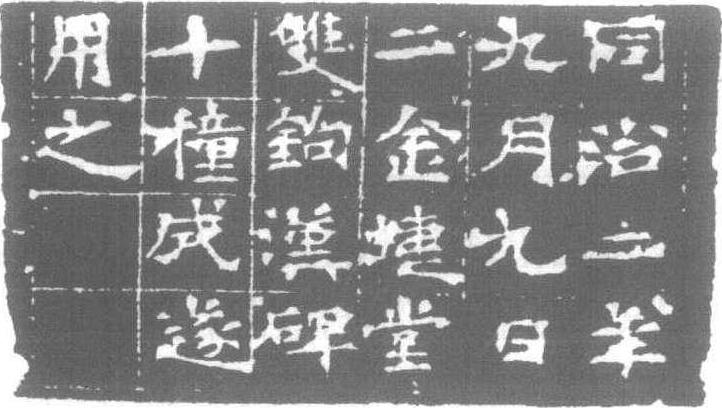 同治二年
九月九日
二金蜨堂
雙鉤漢碑
十穜成遂
用之